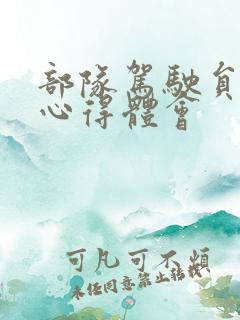 部隊駕駛員
心得體會
可凡可不頻
未經同意禁止轉載